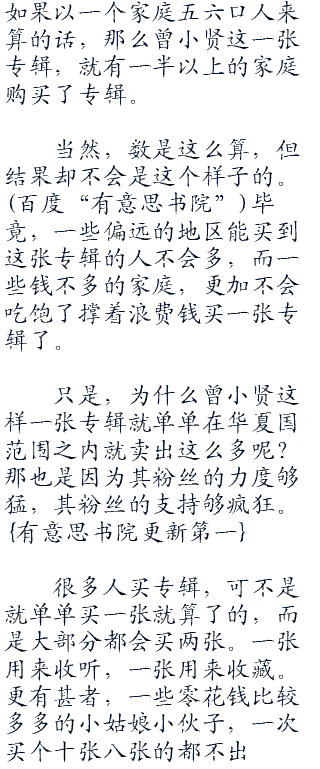 如果以一个家庭五六口人来
算的话，那么曾小贤这一张
专辑，就有一半以上的家庭
购买了专辑。
当然，数是这么算，但
结果却不会是这个样子的。
(百度“有意思书院”)毕
竟，一些偏远的地区能买到
这张专辑的人不会多，而一
些钱不多的家庭，更加不会
吃饱了撑着浪费钱买一张专
辑了。
只是，为什么曾小贤这
样一张专辑就单单在华夏国
范围之内就卖出这么多呢？
那也是因为其粉丝的力度够
猛，其粉丝的支持够疯狂。
{有意思书院更新第一}
很多人买专辑，可不是
就单单买一张就算了的，而
是大部分都会买两张。一张
用来收听，一张用来收藏。
更有甚者，一些零花钱比较
多多的小姑娘小伙子，一次
买个十张八张的都不出